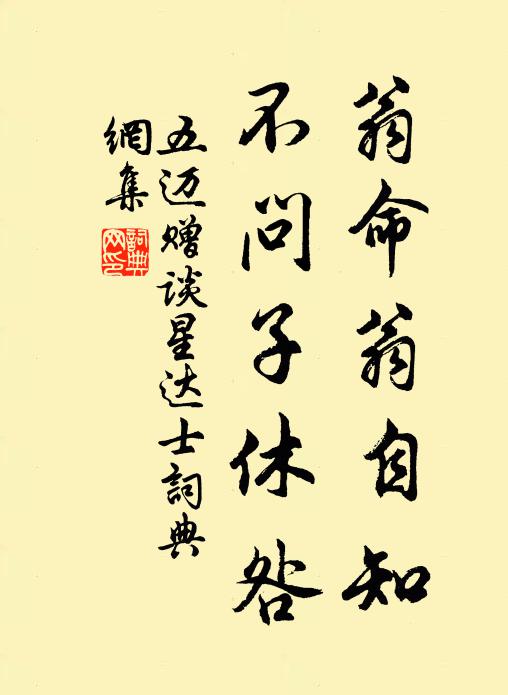 翁命翁自知
不问子休咎
五迈赠谈星达士詞典
網集
詞典网印